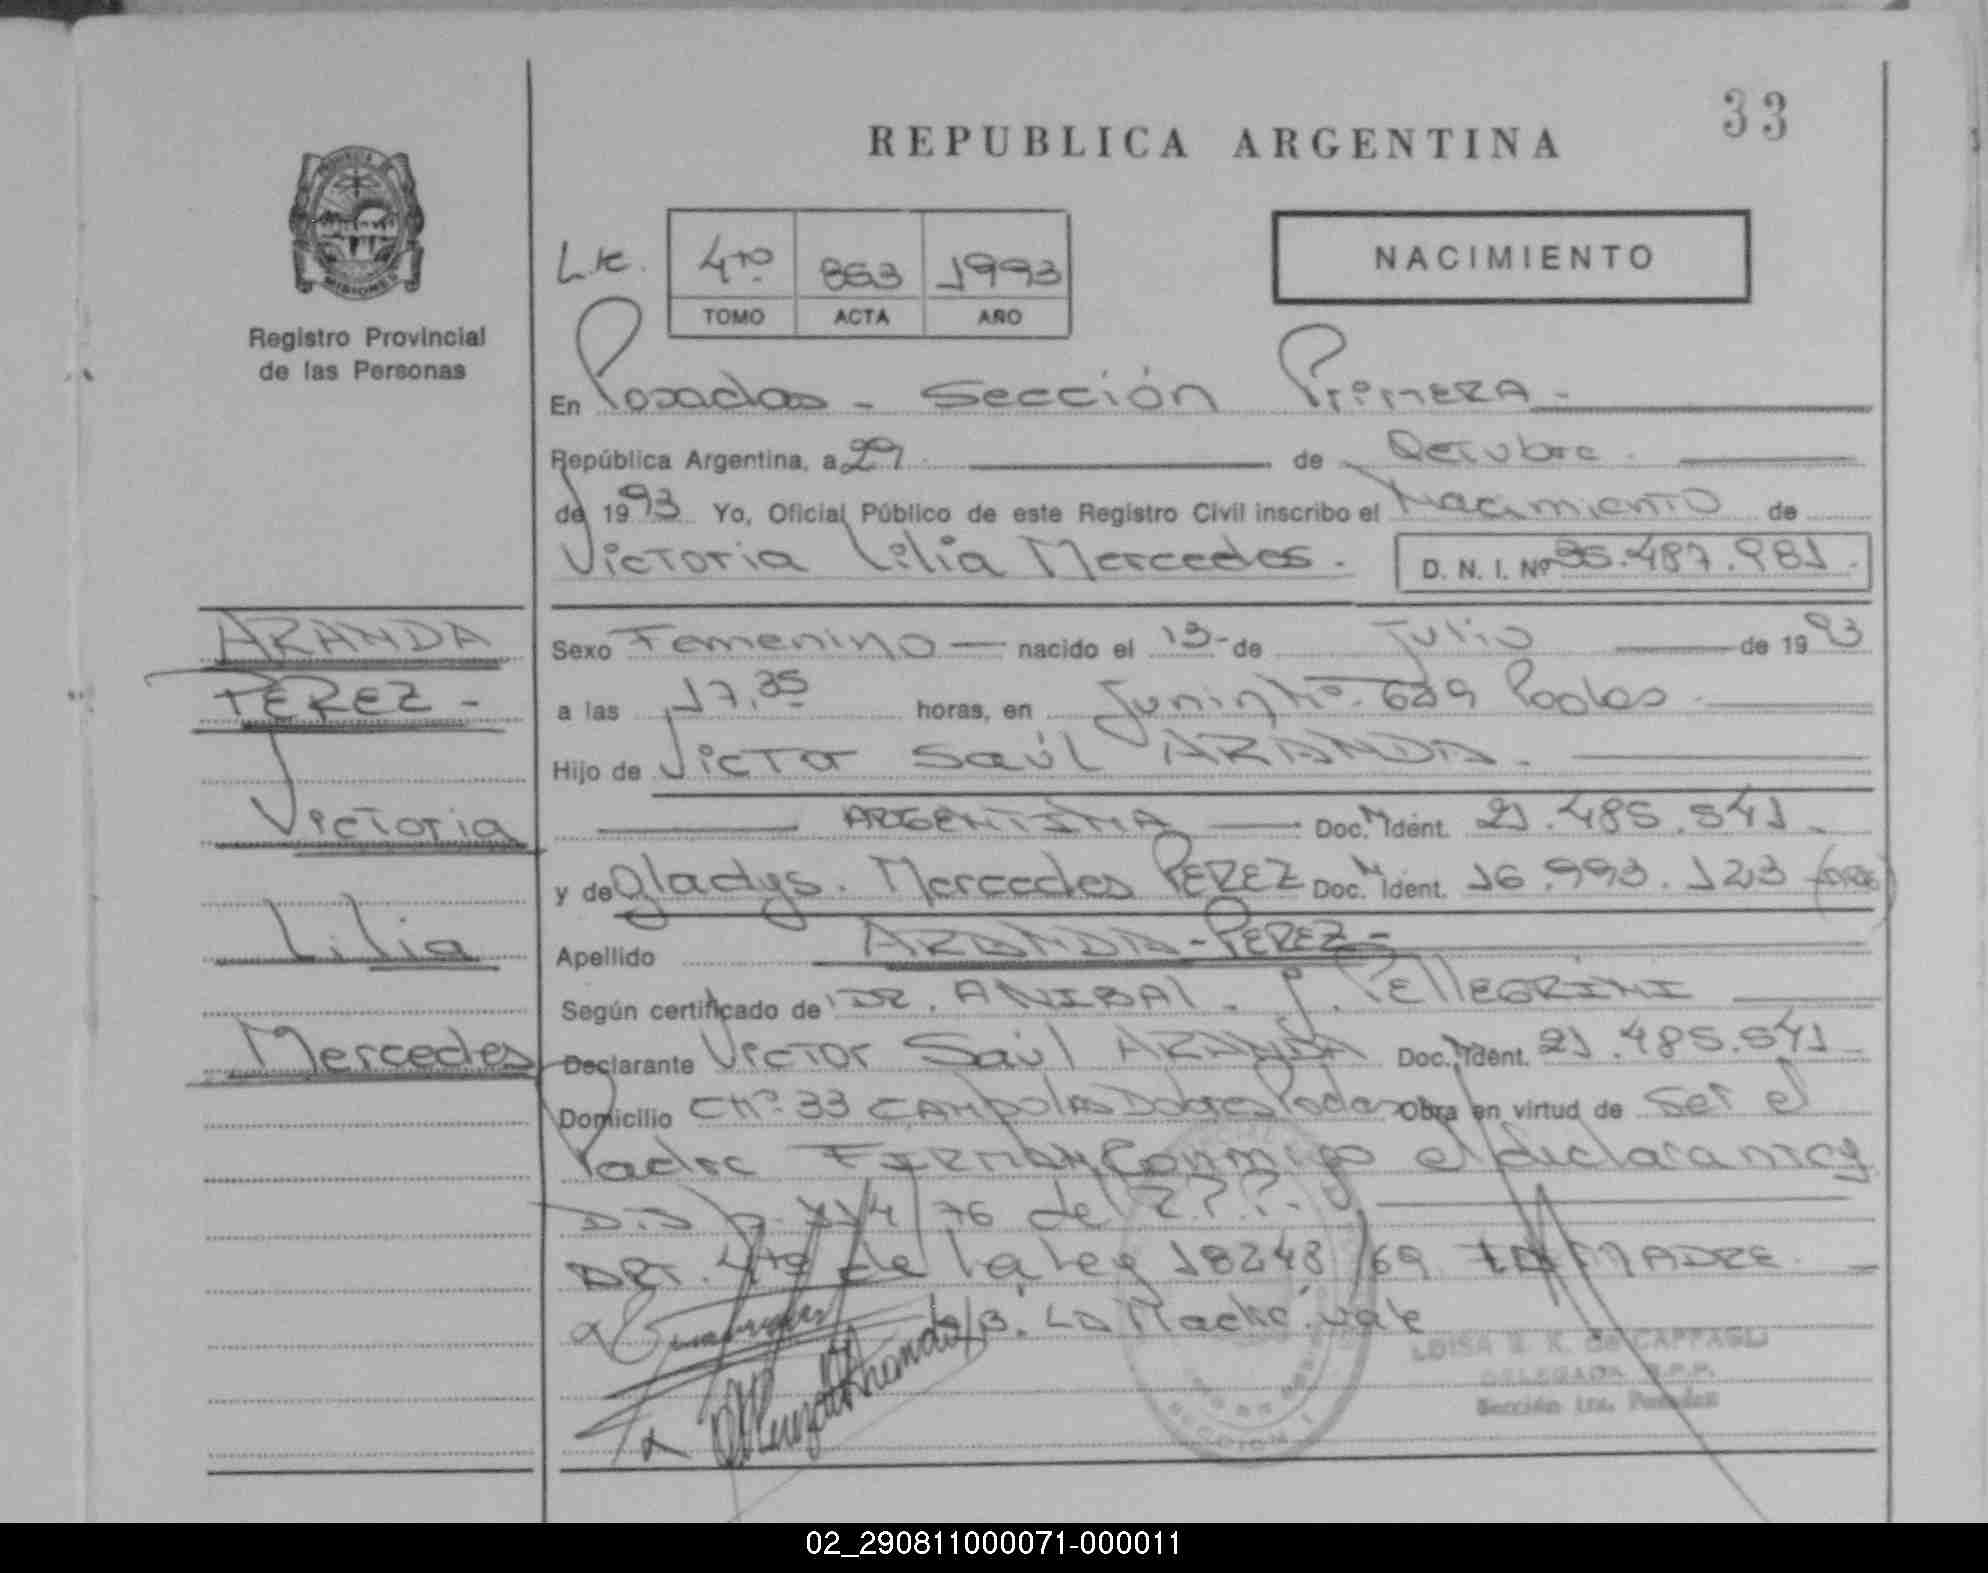 33
REPUBLICA ARGENTINA
4to 863 1993
TOMO ACTA AÑO
NACIMIENTO
PROVINCIA
MISIONES
Registro Provincial
de las Personas
En Posadas - Sección Primera -
República Argentina, a 29 de Octubre.
de 1993 Yo, Oficial Público de este Registro Civil inscribo el Nacimiento de
Victoria Lilia Mercedes. D. N. I. Nº
ARANDA
PEREZ -
Victoria
Lilia
Mercedes
Sexo Femenino nacido el 13 de Julio de 1993
a las 17,35 horas, en Junin Nº 639 Podas
Hijo de Victor Saúl ARANDA.
ARGENTINA Doc. M Ident. 21.485.541
y de Gladys. Mercedes PEREZ Doc. M Ident. 16.993.123
Apellido ARANDA - PEREZ -
Según certificado de DR. ANIBAL. J. PELLEGRINI
Declarante Victor Saúl ARANDA Doc. M Ident. 21.485.541
Domicilio CH º. 33 Obra en virtud de ser el
Padre FIRMAN Conmigo el declarante y
de
ART. 4to de la Ley 18248/69 LA MADRE.
La Madre: vale
LUISA E. K. de CAPPAGLI
DELEGADA R.P.P.
Sección 1ra. Posadas
02_290811000071-000011